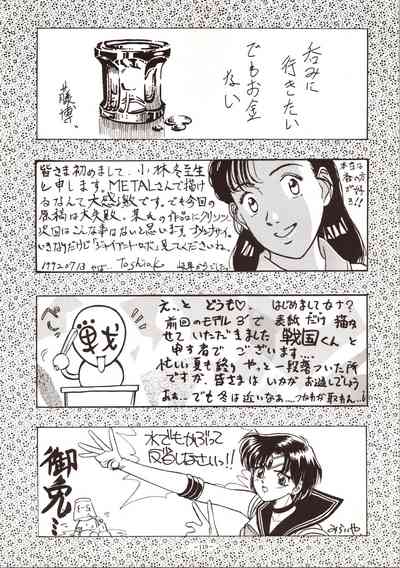 呑みに
行きたい
でもお金
ない
藤博
皆さま初めまして、小林冬至生
と申します。METALさんで描け
るなんて大感激です。でも今回の
原稿は大失敗。某氏の作品にクリソツ
次回はこんな事はないと思います。ゴメンナサイ。
いきなりだけど「ジャイアントロボ」見てくださいね。
1992.07.13
Toshiaki
本当は
春の方
が好
き!!
戦
え、、と どうも♡ はじめましてかな?
前回のモデル3で表紙だけ描か
せていただきました戦国くんと
申す者でございます…
忙しい夏も終り、やっと一段落ついた所
ですが、皆さまはいかがお過しでしょう
あぁ…でも冬は近いなぁ…
水でもかぶって
反省しなさいっ!!
御免…
みぶしや